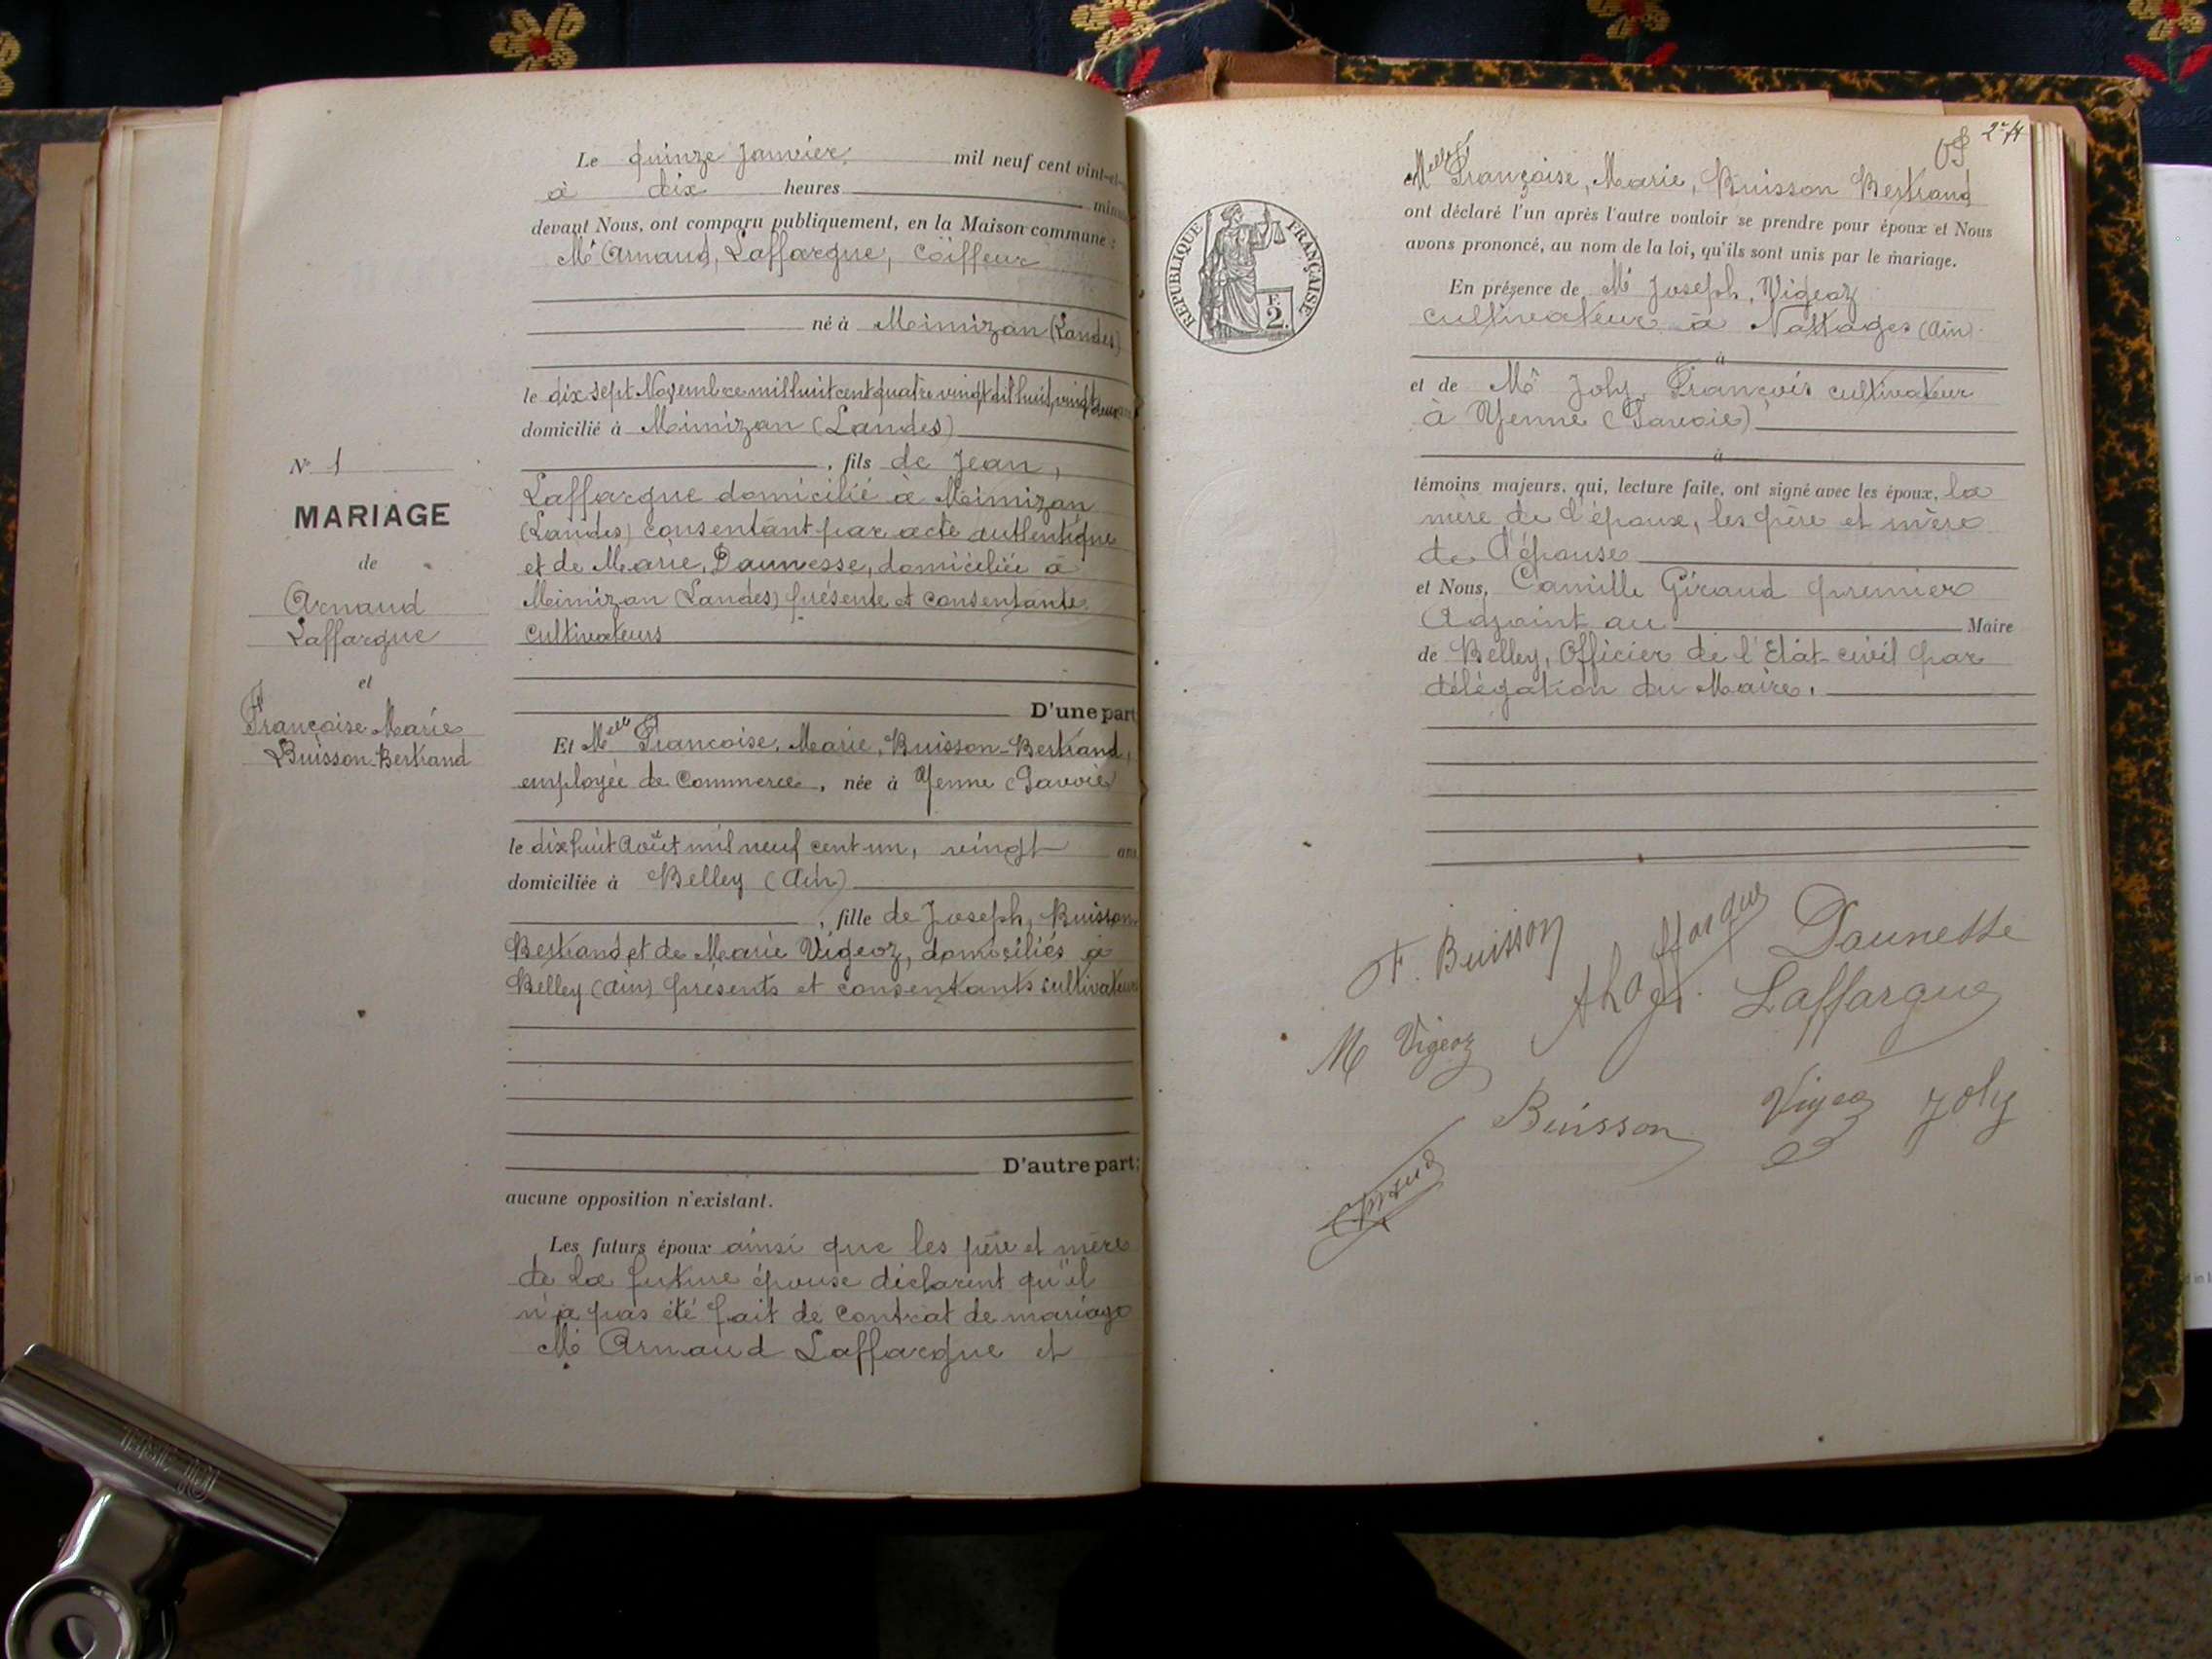 Le quinze Janvier, mil neuf cent vint-et-
à dix heures minu
devant Nous, ont comparu publiquement, en la Maison commune :
Mr Arnaud, Laffargue, Coiffeur
né à Mimizan (Landes)
le dix sept Novembre mil huit cent quatre vingt dix huit, vingt deux ans
domicilié à Mimizan (Landes)
N° 1
MARIAGE
de
Arnaud
Laffargue
et
Françoise Marie
Buisson-Bertrand
, fils de Jean,
Laffargue domicilié à Mimizan
(Landes) consentant par acte authentique
et de Marie, Daunesse, domiciliée à
Mimizan (Landes) présente et consentante
cultivateurs
D'une part
Et Melle Françoise, Marie, Buisson-Bertrand,
employée de Commerce, née à Yenne (Savoie)
le dix huit Août mil neuf cent un, vingt ans
domiciliée à Belley (Ain)
, fille de Joseph, Buisson
Bertrand et de Marie Vigeoz, domiciliés à
Belley (Ain) présents et consentants cultivateurs
D'autre part;
aucune opposition n'existant.
Les futurs époux ainsi que les père et mère
de la future épouse déclarent qu'il
n'a pas été fait de contrat de mariage
Mr Arnaud Laffargue et
Melle Françoise, Marie, Buisson Bertrand
ont déclaré l'un après l'autre vouloir se prendre pour époux et Nous
avons prononcé, au nom de la loi, qu'ils sont unis par le mariage.
RÉPUBLIQUE FRANÇAISE
F.
2.
En présence de Mr Joseph, Vigeoz
cultivateur à Nattages (Ain)
à
et de Mr Joly, François cultivateur
à Yenne (Savoie)
à
témoins majeurs, qui, lecture faite, ont signé avec les époux, la
mère de l'époux, les père et mère
de l'épouse
et Nous, Camille Giraud premier
Adjoint au Maire
de Belley, Officier de l'Etat-civil par
délégation du Maire.
F. Buisson
Laffargue
Daunesse
Laffargue
M Vigeoz
Buisson
Vigeoz
Joly